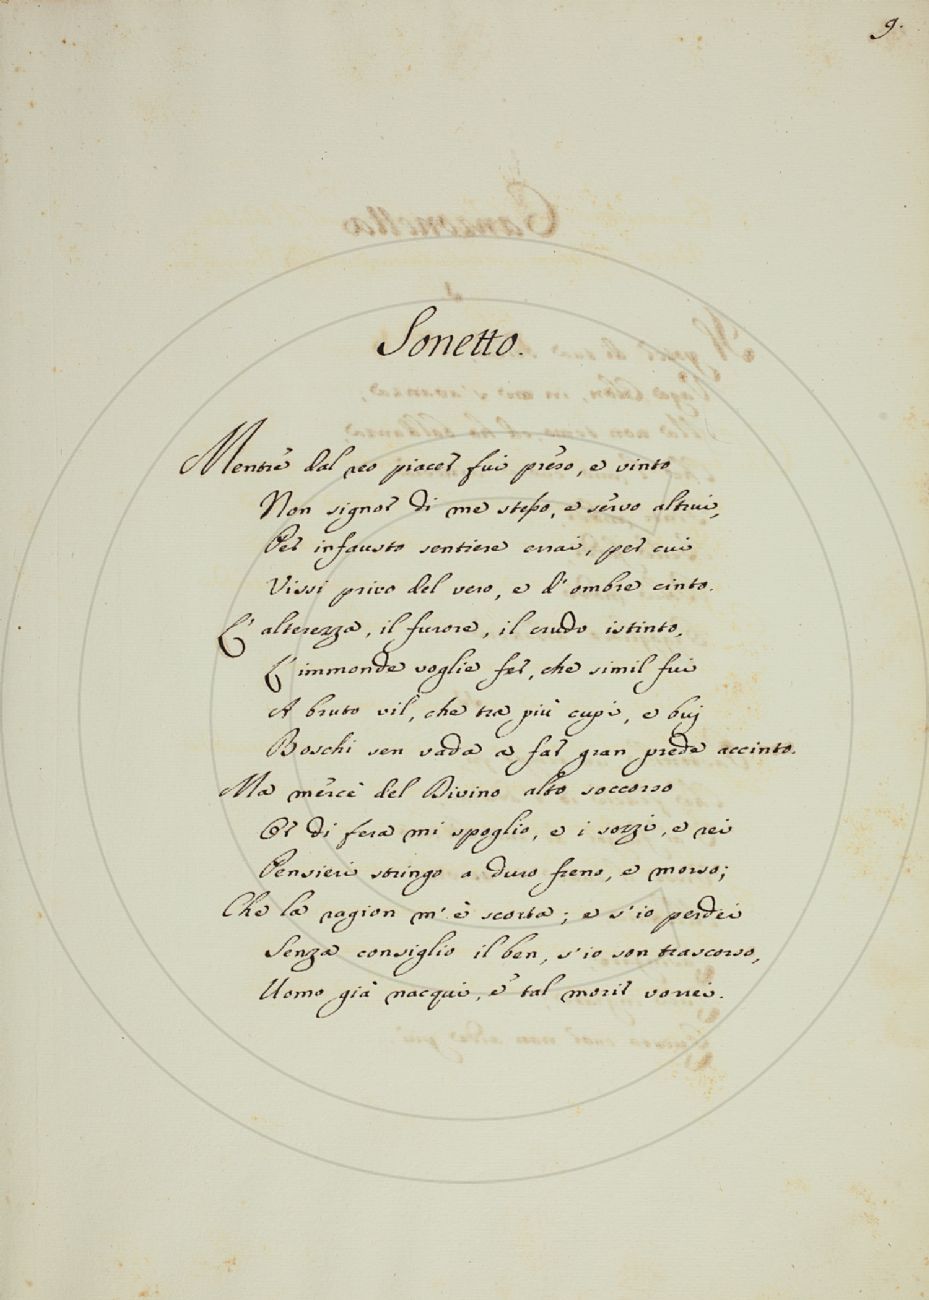 9.
Sonetto.
Mentre dal reo piacer fui preso, e vinto
Non signor di me stesso, e servo altrui,
Per infausto sentiere errai, per cui
Vissi privo del vero, e d'ombre cinto.
L'alterezza, il furore, il crudo istinto,
L'immonde voglie fer, che simil fui
A bruto vil, che tra più cupi, e buj
Boschi sen vada a far gran preda accinto.
Ma mercè del Divino alto soccorso
Or di fera mi spoglio, e i sozzi, e rei
Pensieri stringo a duro freno, e morso;
Che la ragion m'è scorta; e s'io perdei
Senza consiglio il ben, s'io son trascorso,
Uomo già nacqui, e tal morir vorrei.